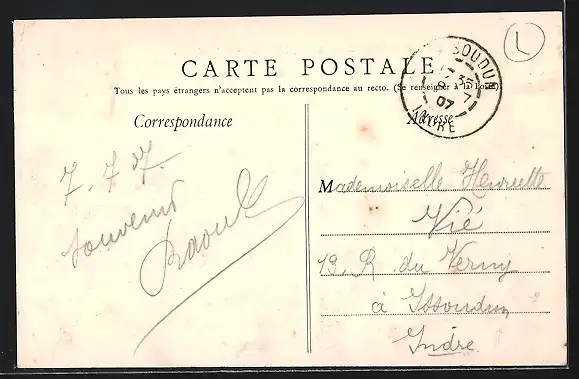 L
CARTE POSTALE
Tous les pays étrangers n'acceptent pas la correspondance au recto. (Se renseigner à la Poste).
ISSOUDUN
35
8 - 7
07
INDRE
Correspondance
Adresse
7. 7 07.
Souvenir
Raoul
Mademoiselle Henriette
Vié
13. R. du Verny
à Issoudun
Indre